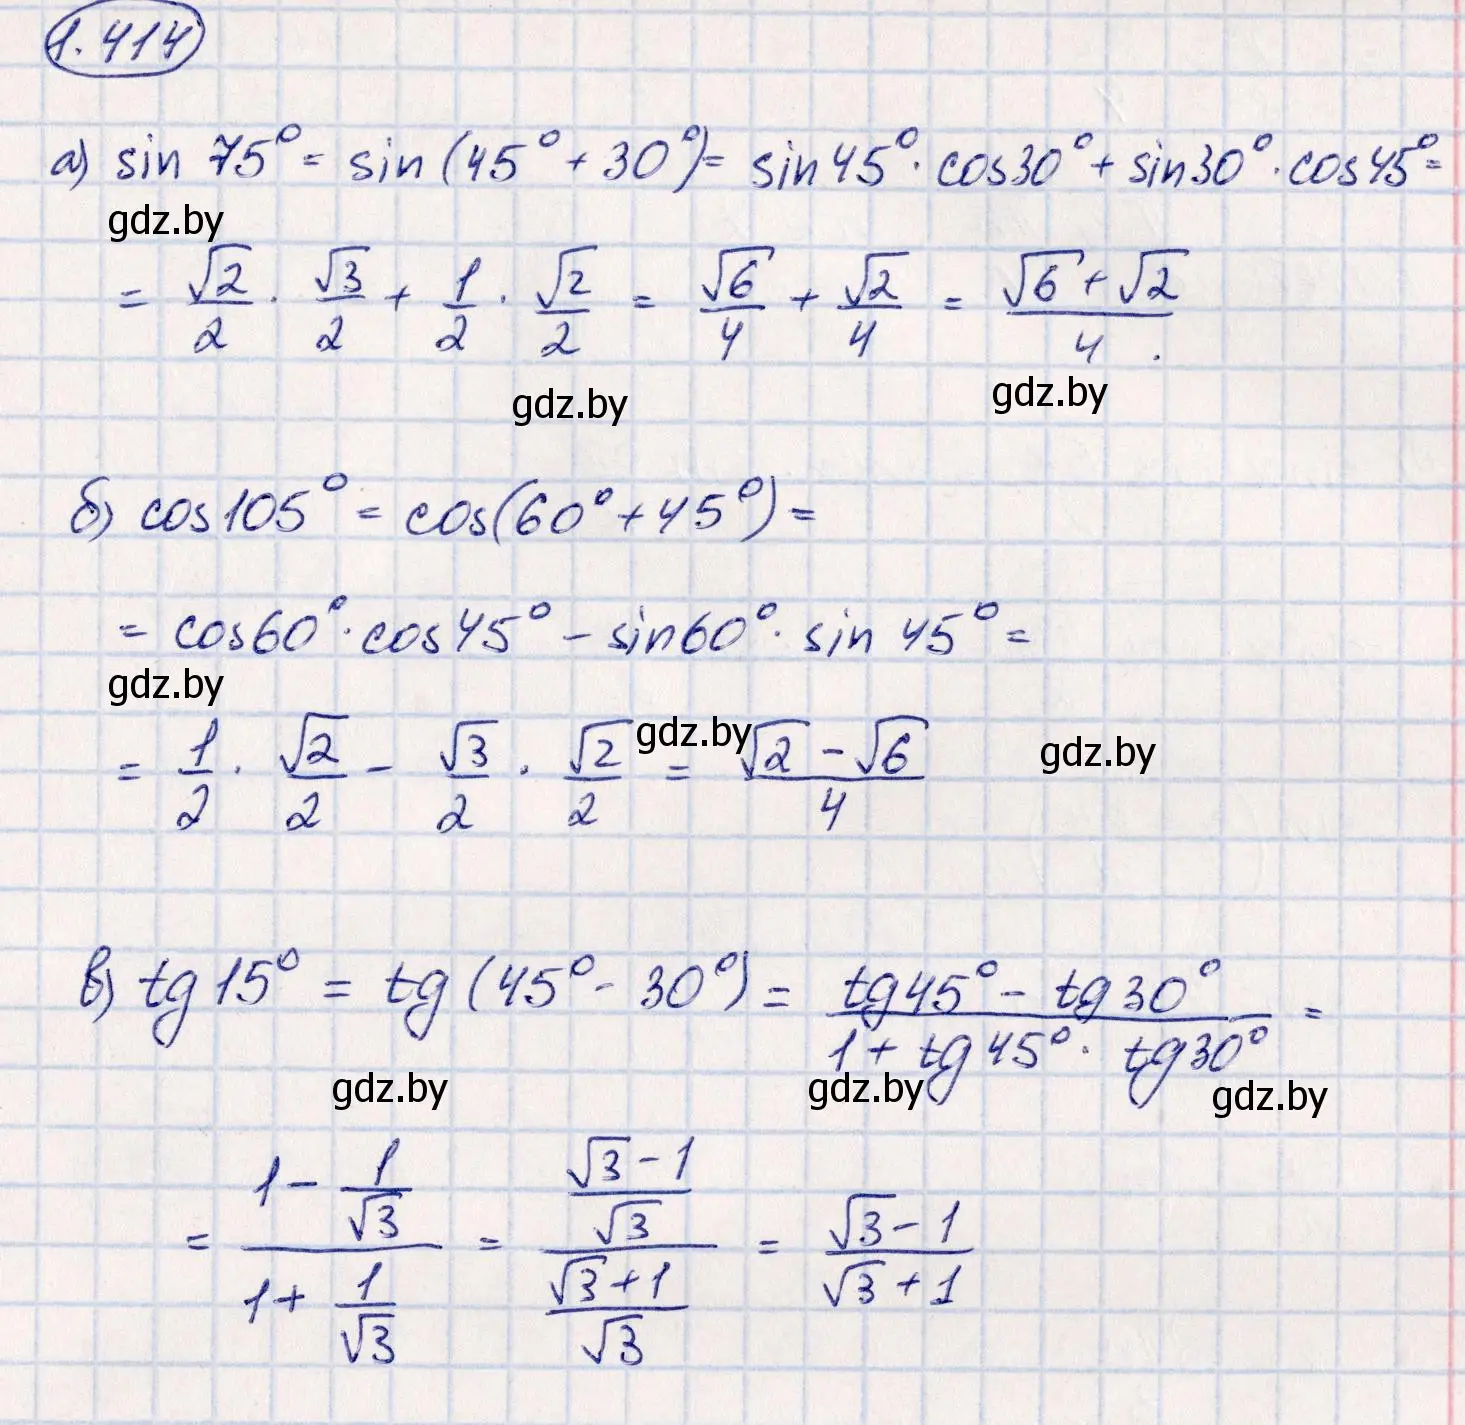 1.414
а) sin 75° = sin (45° + 30°) = sin 45° · cos 30° + sin 30° · cos 45° =
gdz.by
= √2/2 · √3/2 + 1/2 · √2/2 = √6/4 + √2/4 = (√6 + √2)/4 .
gdz.by gdz.by
б) cos 105° = cos (60° + 45°) =
= cos 60° · cos 45° − sin 60° · sin 45° =
gdz.by
= 1/2 · √2/2 − √3/2 · √2/2 = (√2 − √6)/4
gdz.by gdz.by
в) tg 15° = tg (45° − 30°) = (tg 45° − tg 30°)/(1 + tg 45° · tg 30°) =
gdz.by gdz.by gdz.by
= (1 − 1/√3)/(1 + 1/√3) = ((√3 − 1)/√3)/((√3 + 1)/√3) = (√3 − 1)/(√3 + 1)